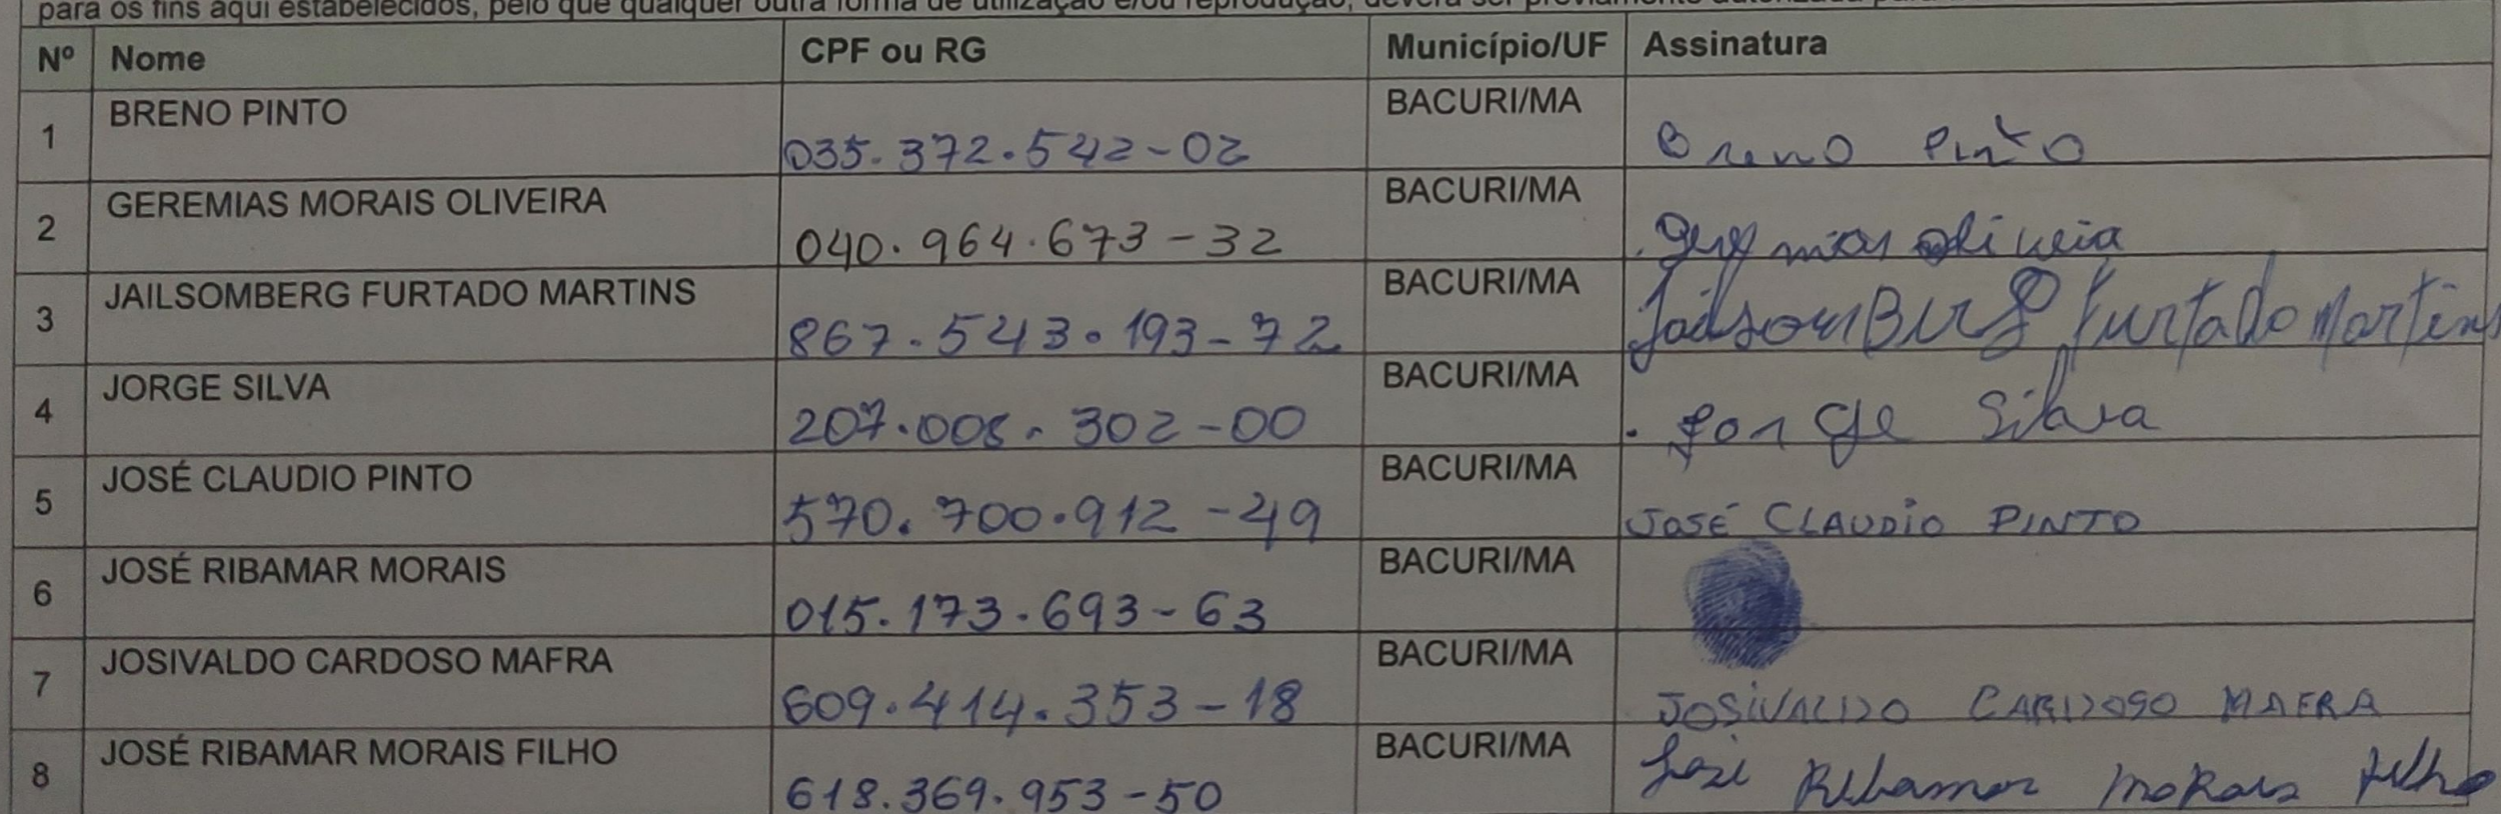 para os fins aqui estabelecidos, pelo que qualquer outra forma de utilização e/ou reprodução, deverá ser previamente autorizada
Nº Nome CPF ou RG Município/UF Assinatura
1 BRENO PINTO 035.372.542-02 BACURI/MA Breno Pinto
2 GEREMIAS MORAIS OLIVEIRA 040.964.673-32 BACURI/MA Geremias oliveia
3 JAILSOMBERG FURTADO MARTINS 867.543.193-72 BACURI/MA JailsomBerg Furtado Martins
4 JORGE SILVA 207.008.302-00 BACURI/MA Jorge Silva
5 JOSÉ CLAUDIO PINTO 570.700.912-49 BACURI/MA JOSÉ CLAUDIO PINTO
6 JOSÉ RIBAMAR MORAIS 015.173.693-63 BACURI/MA
7 JOSIVALDO CARDOSO MAFRA 609.414.353-18 BACURI/MA JOSIVALDO CARDOSO MAFRA
8 JOSÉ RIBAMAR MORAIS FILHO 618.369.953-50 BACURI/MA José Ribamar Morais filho